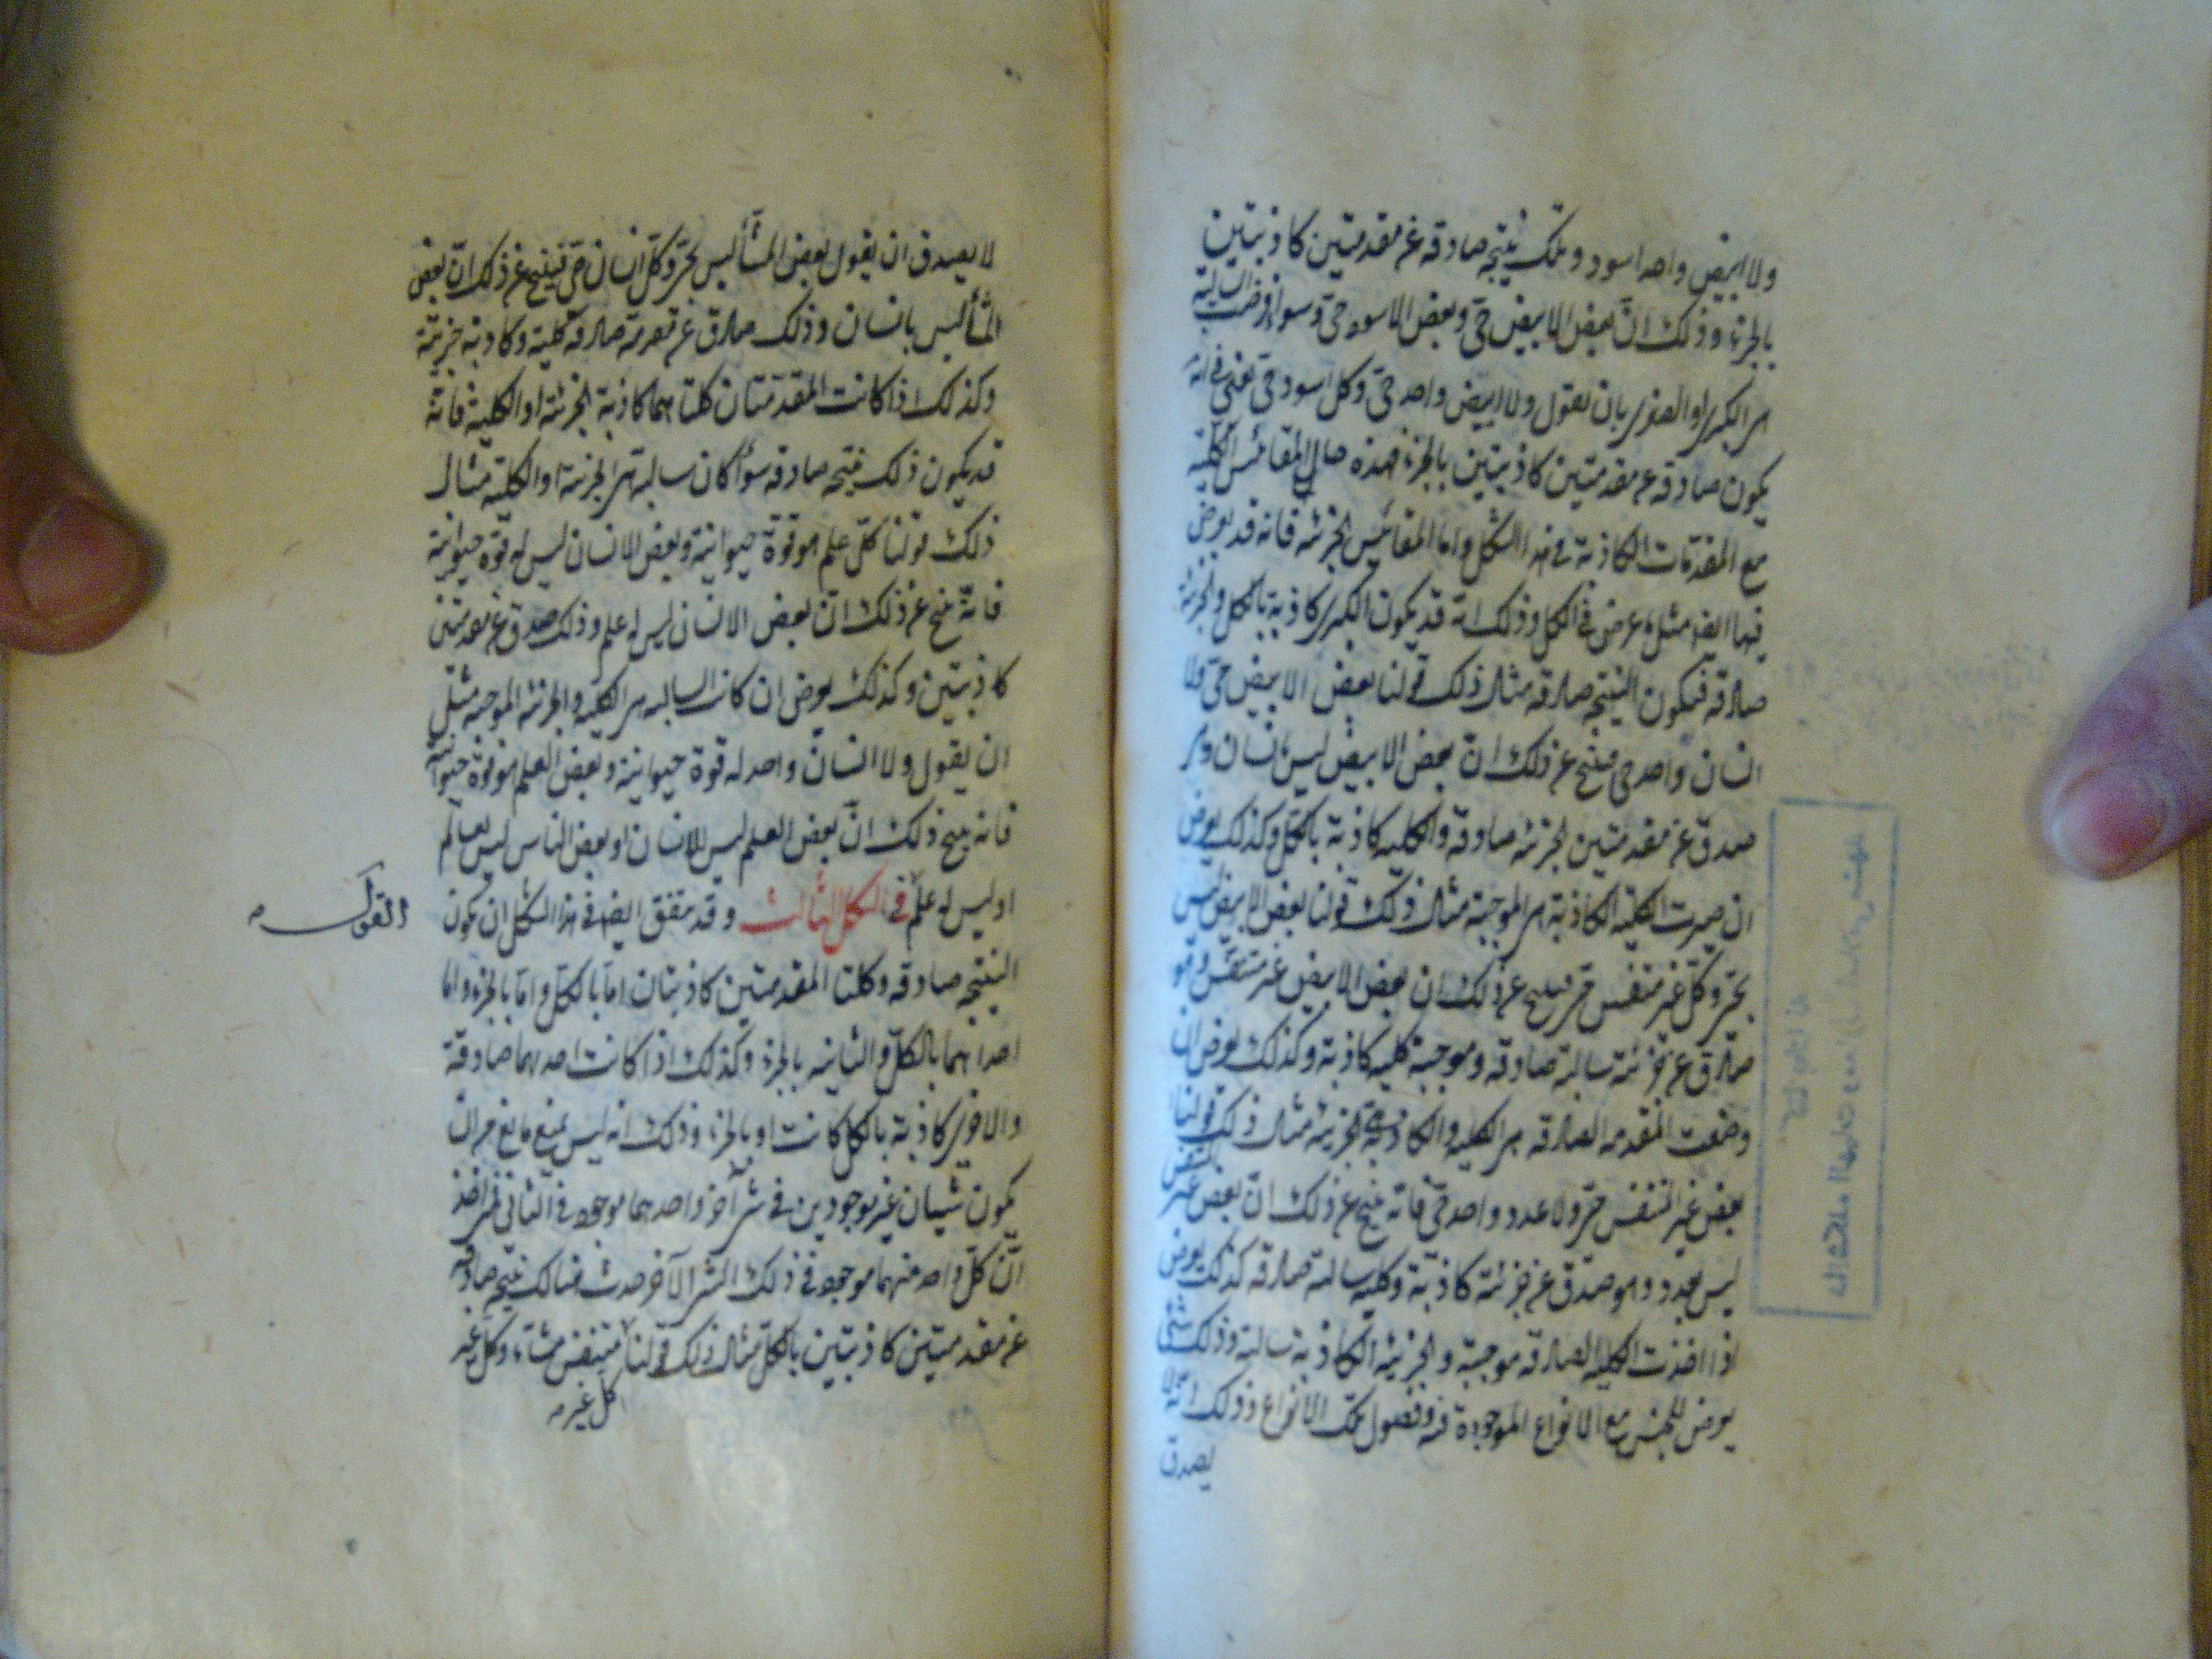 ولا ابيض واحد اسود وتلك نتيجه صادقه عن مقدمتين كاذبتين
بالجزء وذلك انّ بعض الابيض حيّ وبعض الاسود حيّ وسواء وضعت السالبة
هى الكبرى او الصغرى بان نقول ولا ابيض واحد حيّ وكل اسود حيّ
يكون صادقه عن مقدمتين كاذبتين بالجزء فهذه حال المقائيس الكلّية
مع المقدّمات الكاذبة فى هذا الشكل واما المقائيس الجزئية فانه قد يعرض
فيها ايضا مثل ما عرض فى الكل وذلك انه قد يكون الكبرى كاذبة بالكل والجزئية
صادقه فيكون النتيجه صادقه مثال ذلك قولنا بعض الابيض حيّ ولا
انسان واحد حى فينتج عن ذلك انّ بعض الابيض ليس بانسان
صدق عن مقدمتين الجزئية صادقه والكليه كاذبة بالكل وكذلك يعرض
ان صيرت الكلّية الكاذبة هى الموجبة مثال ذلك قولنا بعض الابيض ليس
بحيّ وكلّ غير متنفس حى فينتج عن ذلك ان بعض الابيض غير متنفّس وهو
صادق عن جزئية سالبة صادقه وموجبة كليه كاذبة وكذلك يعرض ان
وضعت المقدمه الصادقه هى الكليه والكاذبة هى الجزئية مثال ذلك قولنا
بعض غير المتنفس حيّ ولا عدد واحد حيّ فانّه ينتج عن ذلك انّ بعض غير المتنفس
ليس بعدد وهو صدق عن جزئية كاذبة وكليه سالبة صادقه كذلك يعرض
اذا اخذت الكليه الصادقه موجبة والجزئية الكاذبة سالبة وذلك شى
يعرض للجنس مع الانواع الموجودة فيه وفصول تلك الانواع وذلك انّه لا
يصدق
لا يصدق ان يقول بعض المشّأ ليس بحيّ وكلّ انسان حيّ فينتج عن ذلك انّ بعض
المشّأ ليس بانسان وذلك صادق عن مقدمة صادقة كلية وكاذبة جزئية
وكذلك اذا كانت المقدمتان كلتاهما كاذبة الجزئية او الكلية فانّه
قد يكون ذلك نتيجه صادقه سوأ كان سالبة هى الجزئية او الكلّية مثال
ذلك قولنا كلّ علم هو قوة حيوانية وبعض الانسان ليس له قوّة حيوانية
فانّه ينتج عن ذلك انّ بعض الانسان ليس له علم وذلك صدق عن مقدمتين
كاذبتين وكذلك يعرض ان كانت السالبه هى الكليه والجزئية الموجبه مثل
ان يقول ولا انسان واحد له قوة حيوانية وبعض العلم هو قوة حيوانية
فانه ينتج ذلك انّ بعض العلم ليس للانسان او بعض الناس ليس بعالم
او ليس له علم فى الشكل الثالث وقد يتفق ايضا فى هذا الشكل ان يكون
القول
النتيجه صادقه وكلتا المقدمتين كاذبتان امّا بالكلّ وامّا بالجزء واما
احداهما بالكلّ والثانيه بالجزء وكذلك اذا كانت احدهما صادقة
والاخرى كاذبة بالكل كانت او بالجزء وذلك انه ليس يمنع مانع من ان
يكون شيئان غير موجودين فى شئ آخر واحدهما موجود فى الثانى فان اخذ
انّ كلّ واحد منهما موجود فى ذلك الشئ الآخر حدث هنالك نتيجه صادقه
عن مقدمتين كاذبتين بالكلّ مثال ذلك قولنا متنفس مشّاء وكلّ غير
كل غير